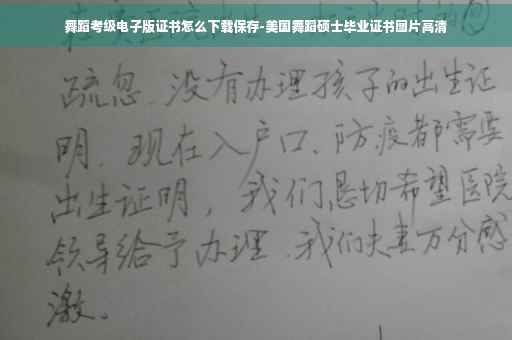 舞蹈考级电子版证书怎么下载保存-美国舞蹈硕士毕业证书图片高清
疏忽、没有办理孩子的出生证
明、现在入户口、防疫都需要
出生证明，我们恳切希望医院
领导给予办理、我们夫妻万分感
激。